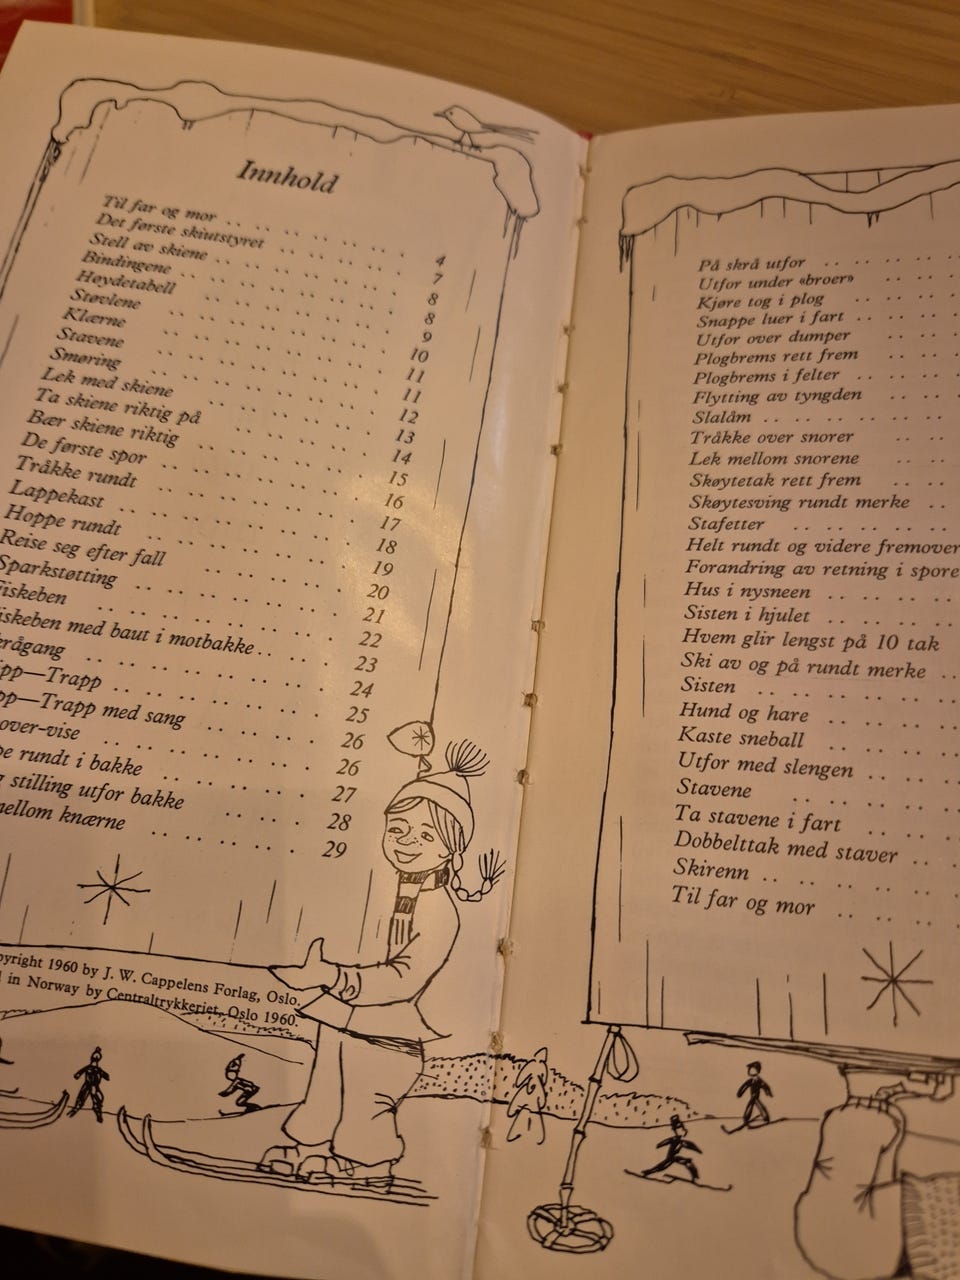 Innhold
Til far og mor .. .. .. .. .. .. 4
Det første skiutstyret .. .. .. .. 7
Stell av skiene .. .. .. .. .. .. 8
Bindingene .. .. .. .. .. .. 8
Høydetabell .. .. .. .. .. .. 9
Støvlene .. .. .. .. .. .. 10
Klærne .. .. .. .. .. .. 11
Stavene .. .. .. .. .. .. 11
Smøring .. .. .. .. .. .. 12
Lek med skiene .. .. .. .. .. 13
Ta skiene riktig på .. .. .. .. 14
Bær skiene riktig .. .. .. .. .. 15
De første spor .. .. .. .. .. .. 16
Tråkke rundt .. .. .. .. .. .. 17
Lappekast .. .. .. .. .. .. 18
Hoppe rundt .. .. .. .. .. .. 19
Reise seg efter fall .. .. .. .. 20
Sparkstøtting .. .. .. .. .. .. 21
iskeben .. .. .. .. .. .. 22
iskeben med baut i motbakke .. .. 23
rågang .. .. .. .. .. .. 24
pp—Trapp .. .. .. .. .. .. 25
pp—Trapp med sang .. .. .. .. 26
over-vise .. .. .. .. .. .. 26
pe rundt i bakke .. .. .. .. .. 27
g stilling utfor bakke .. .. .. .. 28
mellom knærne .. .. .. .. .. 29
pyright 1960 by J. W. Cappelens Forlag, Oslo.
d in Norway by Centraltrykkeriet, Oslo 1960.
På skrå utfor .. .. .. ..
Utfor under «broer» .. ..
Kjøre tog i plog .. .. ..
Snappe luer i fart .. .. ..
Utfor over dumper .. ..
Plogbrems rett frem .. ..
Plogbrems i felter .. .. ..
Flytting av tyngden .. ..
Slalåm .. .. .. .. ..
Tråkke over snorer .. ..
Lek mellom snorene .. ..
Skøytetak rett frem .. ..
Skøytesving rundt merke ..
Stafetter .. .. .. ..
Helt rundt og videre fremover
Forandring av retning i spore
Hus i nysneen .. .. ..
Sisten i hjulet .. .. ..
Hvem glir lengst på 10 tak
Ski av og på rundt merke ..
Sisten .. .. .. .. ..
Hund og hare .. .. ..
Kaste sneball .. .. ..
Utfor med slengen .. ..
Stavene .. .. .. ..
Ta stavene i fart .. ..
Dobbelttak med staver .. ..
Skirenn .. .. .. .. ..
Til far og mor .. .. ..